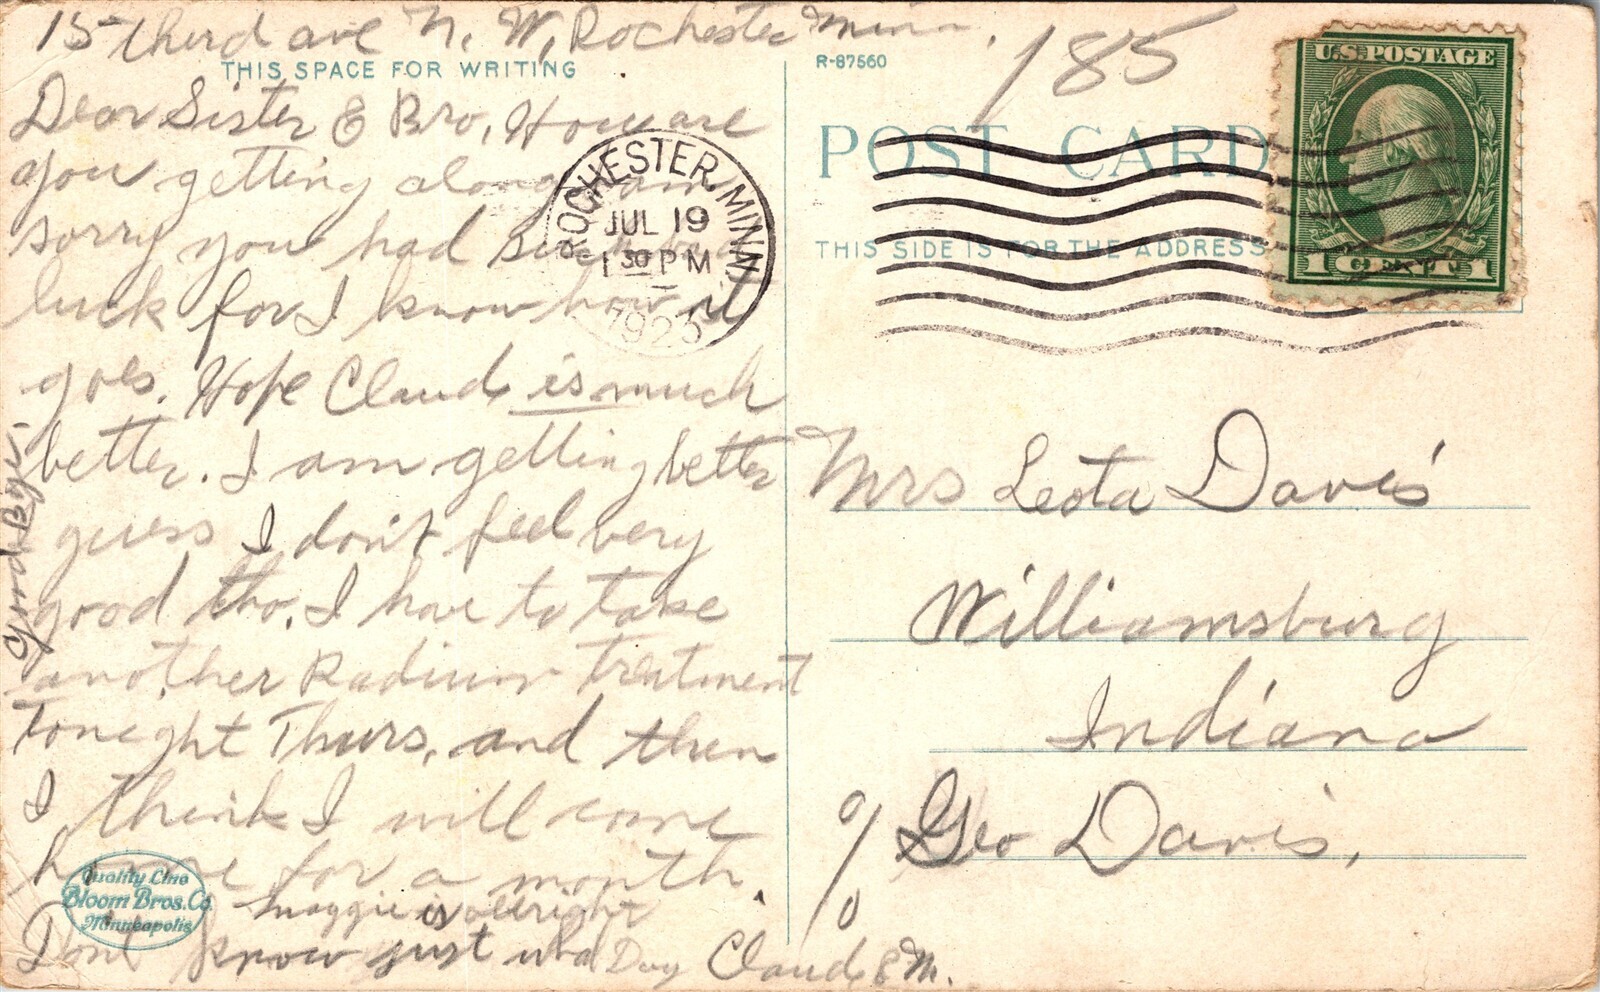 15 third ave N. W, Rochester Minn.
THIS SPACE FOR WRITING
Dear Sister & Bro, How are
you getting along am
sorry you had such bad
luck for I know how it
goes. Hope Claud is much
better. I am getting better
guess I don't feel very
good tho, I have to take
another Radium treatment
Tonight Thurs, and then
I think I will come
home for a month.
Maggie is allright
I don't know just what Day Claud & M.
Good Bye.
Quality Line
Bloom Bros. Co.
Minneapolis
ROCHESTER, MINN.
JUL 19
1 30 PM
1923
R-87560
185
POST CARD
THIS SIDE IS FOR THE ADDRESS
U.S. POSTAGE
1 CENT 1
Mrs Leota Davis
Williamsburg
Indiana
c/o Geo Davis,